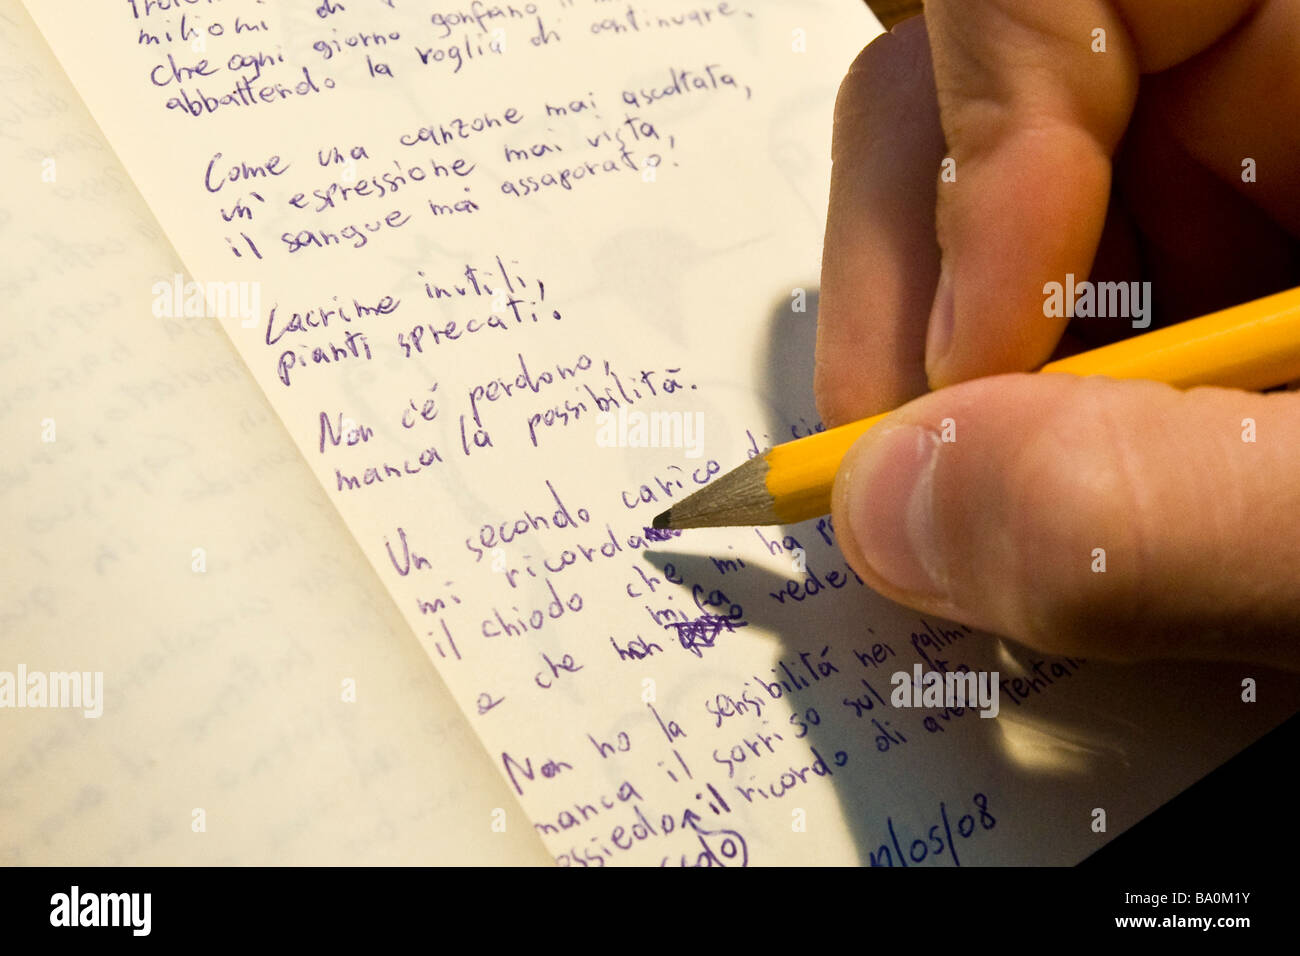 milioni di
che ogni giorno gonfiano il
abbattendo la voglia di continuare.
Come una canzone mai ascoltata,
un' espressione mai vista,
il sangue mai assaporato.
Lacrime inutili,
pianti sprecati.
Non c'é perdono,
manca la possibilitá.
Un secondo carico di
mi ricorda
il chiodo che mi ha
e che non mica
Non ho la sensibilitá nei palmi
manca il sorriso sul volto
il ricordo di aver
/05/08
alamy
www.alamy.com
Image ID: BA0M1Y